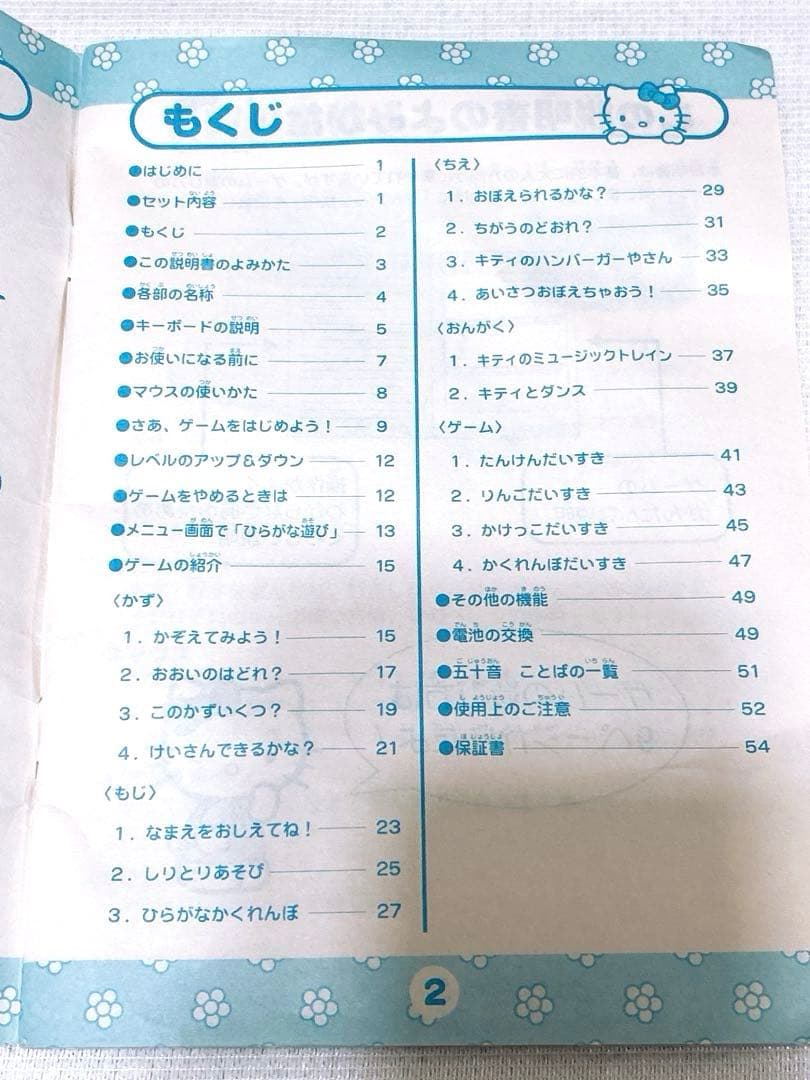 もくじ
●はじめに 1
●セット内容 1
●もくじ 2
●この説明書のよみかた 3
●各部の名称 4
●キーボードの説明 5
●お使いになる前に 7
●マウスの使いかた 8
●さあ、ゲームをはじめよう! 9
●レベルのアップ&ダウン 12
●ゲームをやめるときは 12
●メニュー画面で「ひらがな遊び」 13
●ゲームの紹介 15
〈かず〉
1. かぞえてみよう! 15
2. おおいのはどれ? 17
3. このかずいくつ? 19
4. けいさんできるかな? 21
〈もじ〉
1. なまえをおしえてね! 23
2. しりとりあそび 25
3. ひらがなかくれんぼ 27
〈ちえ〉
1. おぼえられるかな? 29
2. ちがうのどおれ? 31
3. キティのハンバーガーやさん 33
4. あいさつおぼえちゃおう! 35
〈おんがく〉
1. キティのミュージックトレイン 37
2. キティとダンス 39
〈ゲーム〉
1. たんけんだいすき 41
2. りんごだいすき 43
3. かけっこだいすき 45
4. かくれんぼだいすき 47
●その他の機能 49
●電池の交換 49
●五十音 ことばの一覧 51
●使用上のご注意 52
●保証書 54
2